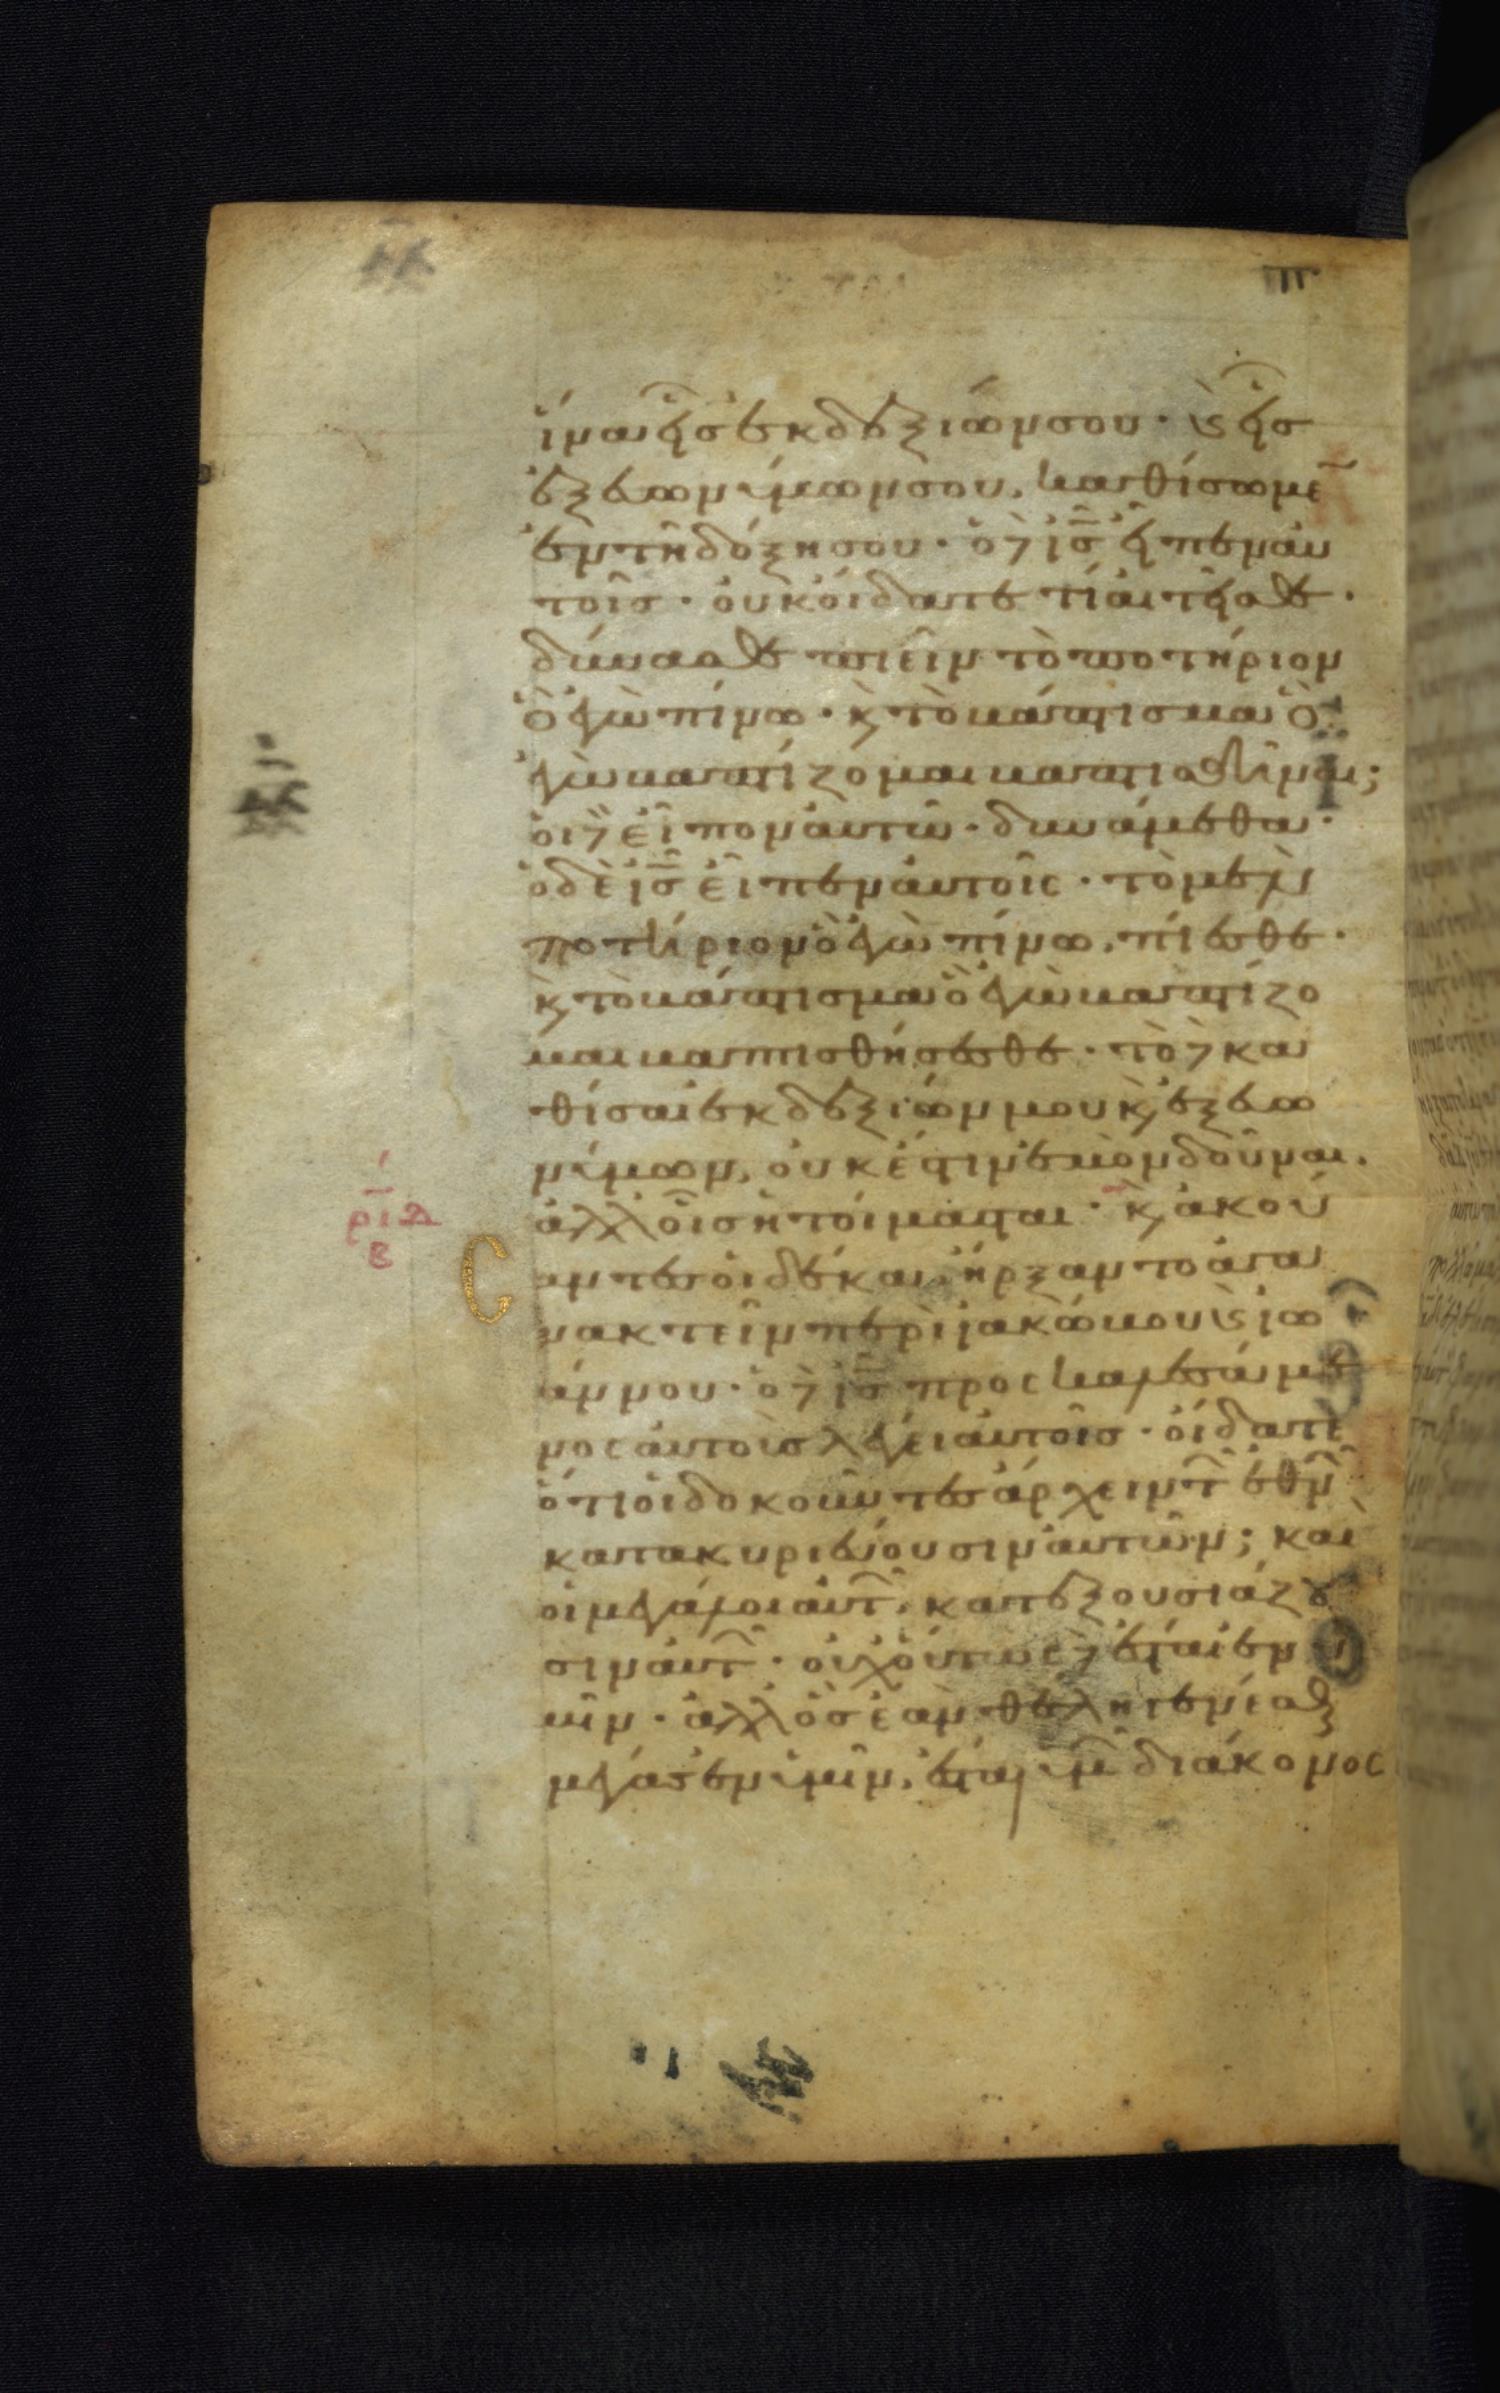 ἵνα εἷς ἐκ δεξιῶν σου · ϗ εἷς
ἐξ εὐωνύμων σου, καθίσωμε̅
ἐν τῇ δόξῃ σου · ὁ δὲ ις̅ εἶπεν αὐ
τοῖς · οὐκ οἴδατε τί αἰτεῖσθε ·
δύνασθε πιεῖν τὸ ποτήριον
ὃ ἐγὼ πίνω · ϗ τὸ βάπτισμα ὃ
ἐγὼ βαπτίζομαι βαπτισθῆναι;
οἱ δὲ εἶπον αὐτῶ · δυνάμεθα ·
ὁ δὲ ις̅ εἶπεν αὐτοῖς · τὸ μὲν
ποτήριον ὃ ἐγὼ πίνω, πίεσθε ·
ϗ τὸ βάπτισμα ὃ ἐγὼ βαπτίζο
μαι βαπτισθήσεσθε · τὸ δὲ κα
θίσαι ἐκ δεξιῶν μου ϗ ἐξ εὐω
νύμων, οὐκ ἔστιν ἐμὸν δοῦναι ·
ἀλλ οἷς ἡτοίμασται · ϗ ἀκού
ριδ
β
σαντες οἱ δέκα, ἤρξαντο ἀγα
νακτεῖν περὶ ἰακώβου ϗ ἰω
άννου · ὁ δὲ ις̅ προσκαλεσάμε
νος αὐτοὺς λέγει αὐτοῖς · οἴδατε
ὅτι οἱ δοκοῦντες ἄρχειν τ͂ ἐθν͂
κατακυριεύουσιν αὐτῶν; καὶ
οἱ μεγάλοι αὐτ͂, κατεξουσιάζου
σιν αὐτ͂ · οὐχ οὕτως δὲ ἔσται ἐν ὑ
μῖν · ἀλλ ὃς ἐὰν θέλῃ γενέσθαι
μέγας ἐν ὑμῖν, ἔσται ὑμ͂ διάκονος